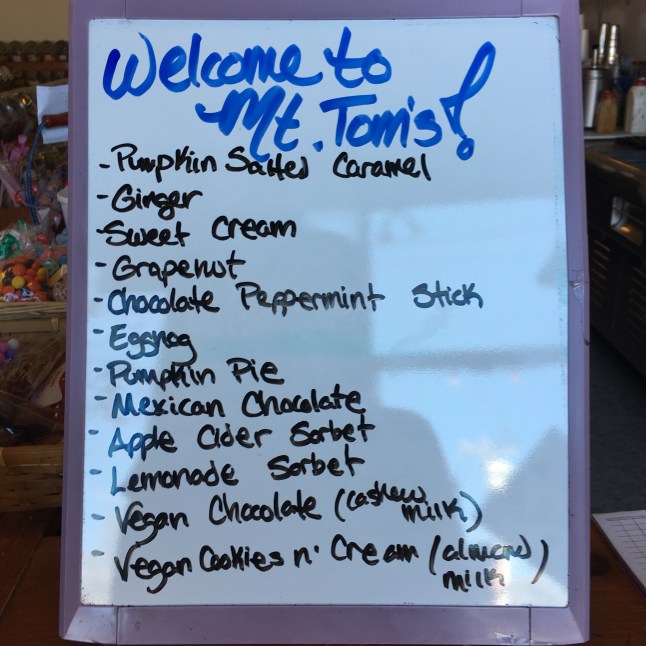 Welcome to
Mt. Tom's!
- Pumpkin Salted Caramel
- Ginger
- Sweet Cream
- Grapenut
- Chocolate Peppermint Stick
- Eggnog
- Pumpkin Pie
- Mexican Chocolate
- Apple Cider Sorbet
- Lemonade Sorbet
- Vegan Chocolate (cashew milk)
- Vegan Cookies n' Cream (almond milk)